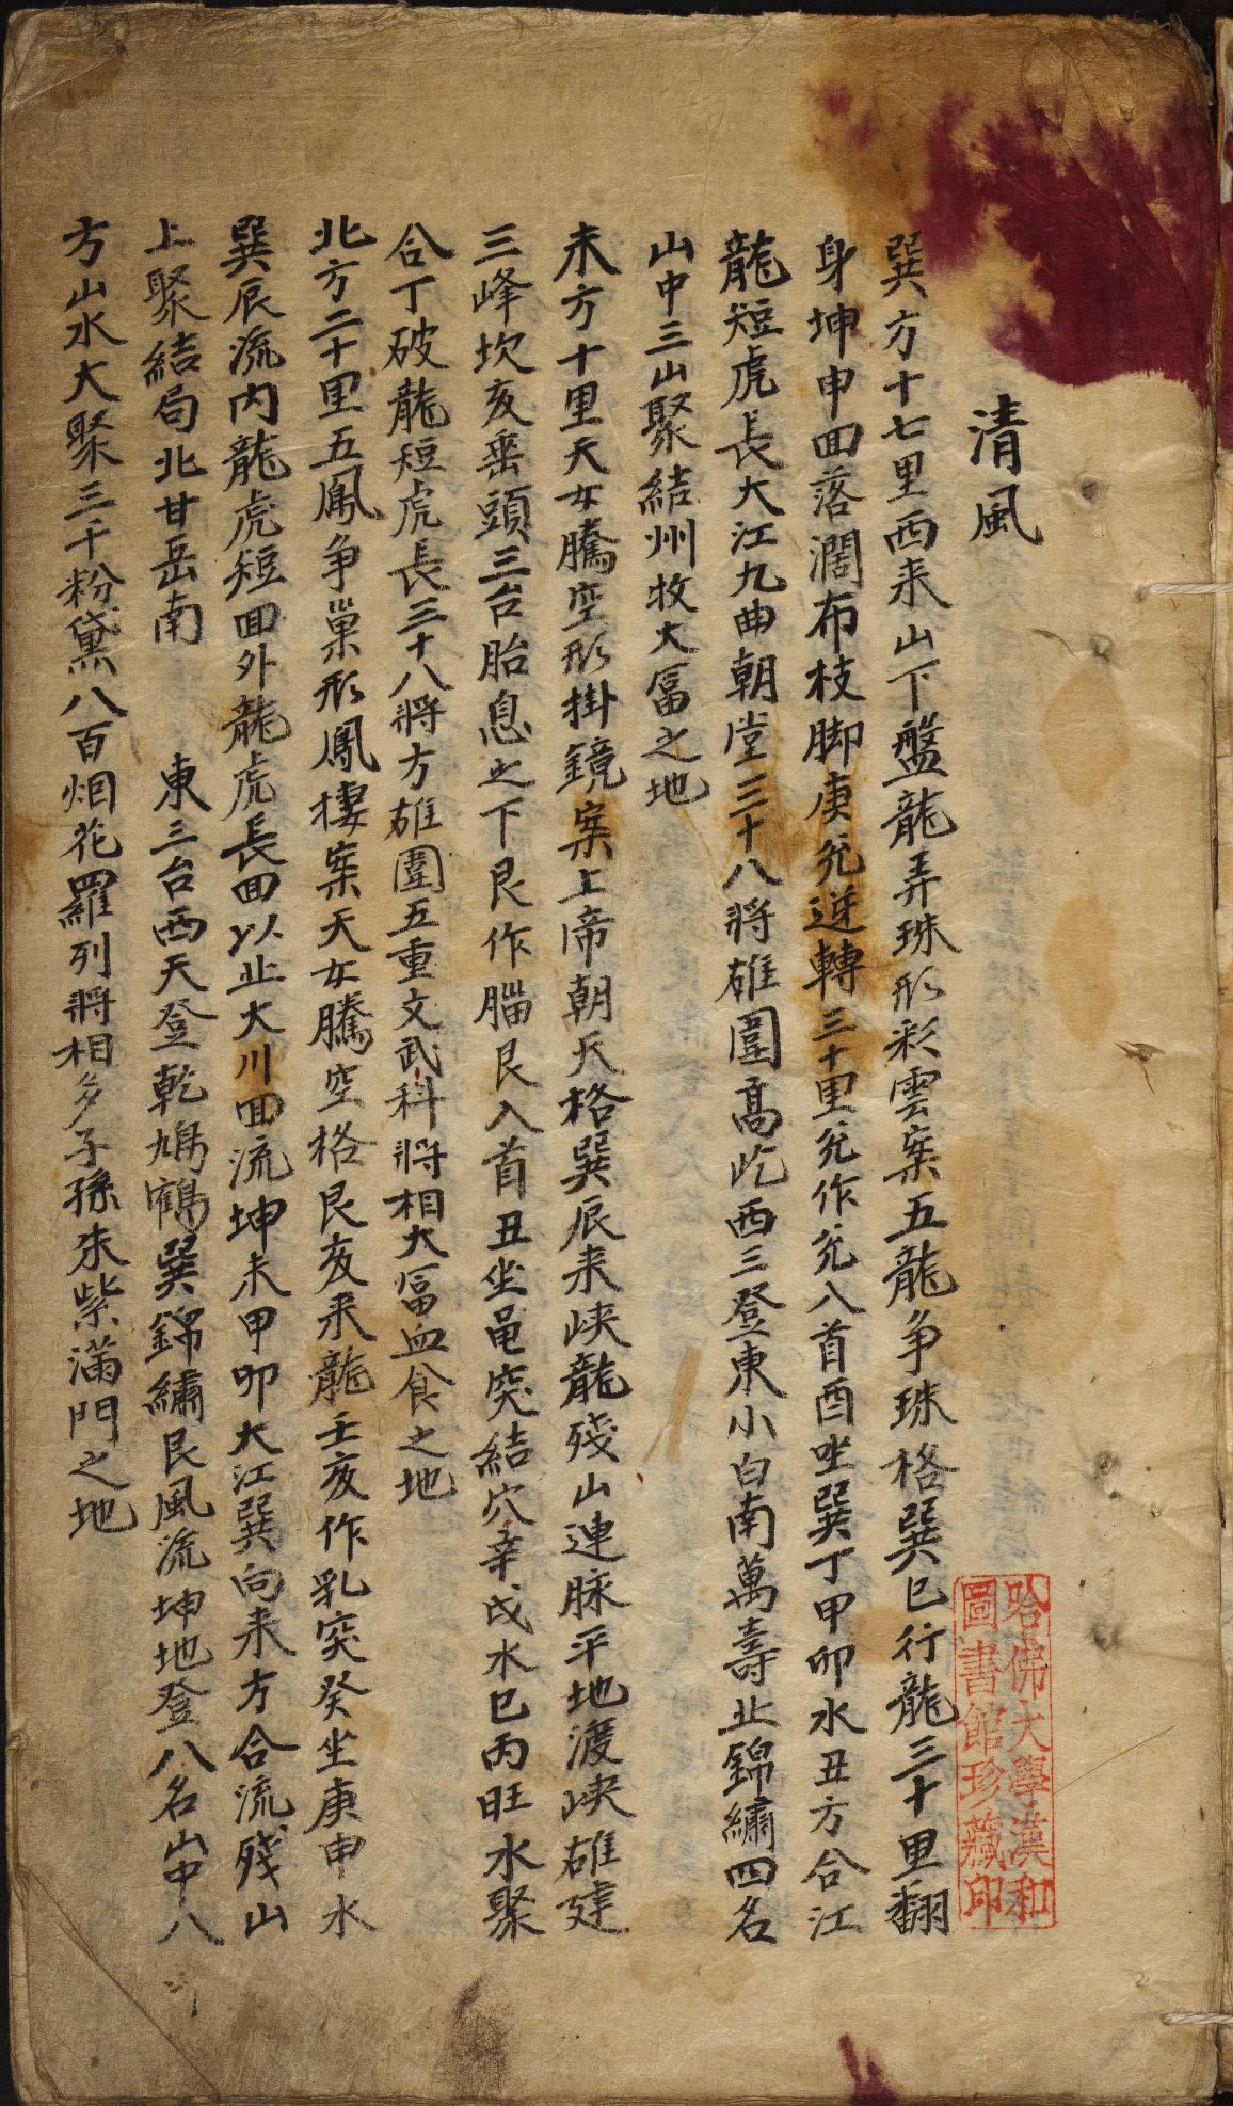 清風
巽方十七里西来山下盤龍弄珠形彩雲案五龍争珠格巽巳行龍三十里翻
身坤申回落濶布枝脚庚兊逆轉三十里兊作兊入首酉坐巽丁甲卯水丑方合江
龍短虎長大江九曲朝堂三十八將雄圍高屹西三登東小白南萬壽北錦繡四名
山中三山聚結州牧大富之地
未方十里天女騰空形掛鏡案上帝朝天格巽辰来峽龍殘山連脉平地渡峽雄建
三峰坎亥垂頭三台胎息之下艮作腦艮入首丑坐黽突結穴辛戌水巳丙旺水聚
合丁破龍短虎長三十八將方雄圍五重文武科將相大富血食之地
北方二十里五鳳争巢形鳳樓案天女騰空格艮亥来龍壬亥作乳突癸坐庚申水
巽辰流内龍虎短回外龍虎長回以止大川回流坤未甲卯大江巽向来方合流殘山
上聚結局北甘岳南 東三台西天登乾鳩鶴巽錦繡艮風流坤地登八名山中八
方山水大聚三千粉黛八百烟花羅列將相多子孫朱紫滿門之地
哈佛大學漢和
圖書館珍藏印